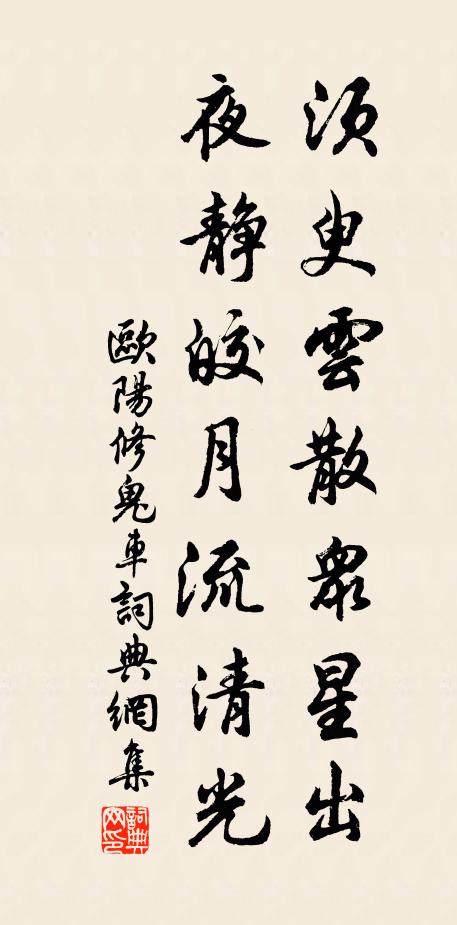 須臾雲散眾星出
夜靜皎月流清光
歐陽修鬼車詞典網集
詞典
网印